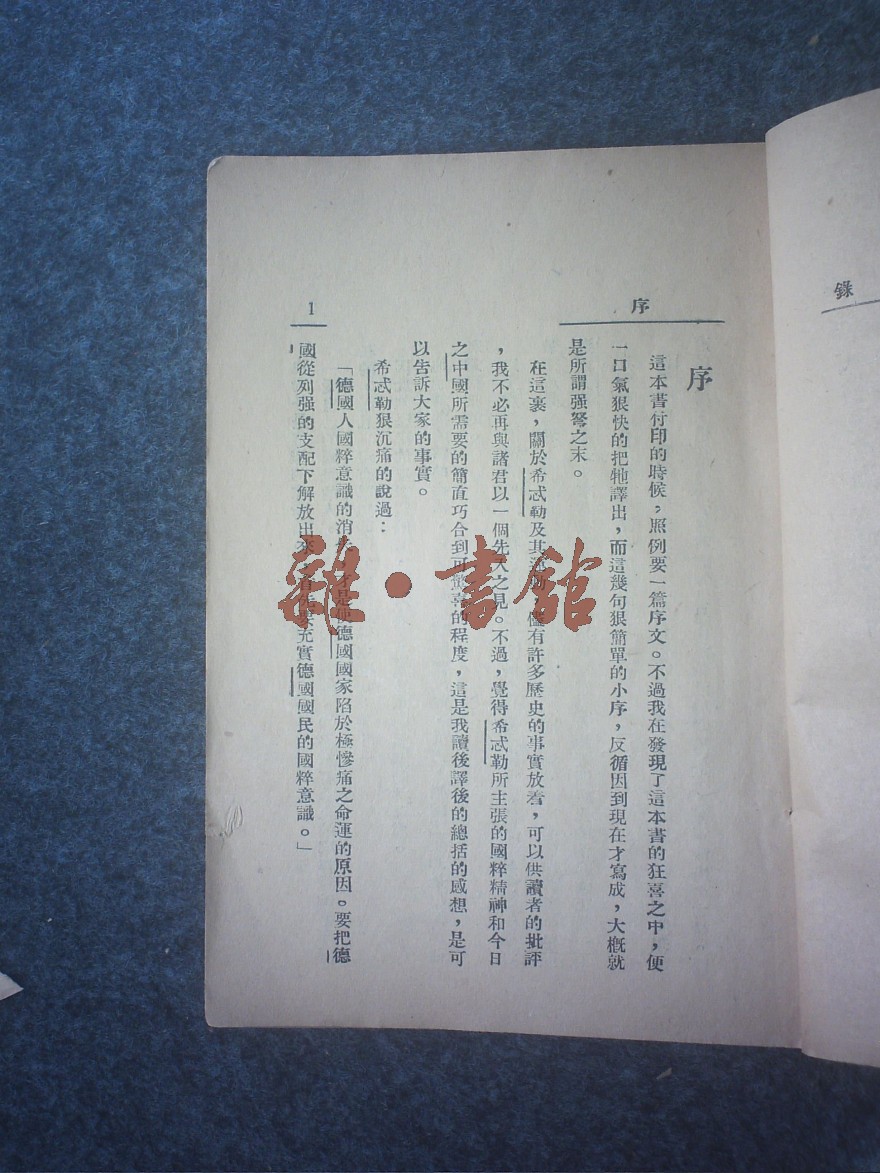 錄
序
序
這本書付印的時候，照例要一篇序文。不過我在發現了這本書的狂喜之中，便
一口氣狠快的把牠譯出，而這幾句狠簡單的小序，反循因到現在才寫成，大槪就
是所謂强弩之末。
在這裏，關於希忒勒及其運動，儘有許多歷史的事實放着，可以供讀者的批評
，我不必再與諸君以一個先入之見。不過，覺得希忒勒所主張的國粹精神和今日
之中國所需要的簡直巧合到可驚喜的程度，這是我讀後譯後的總括的感想，是可
以告訴大家的事實。
希忒勒狠沉痛的說過：
「德國人國粹意識的消，才是使德國國家陷於極慘痛之命運的原因。要把德
國從列强的支配下解放出來，首先要充實德國國民的國粹意識。」
1
雜·書館